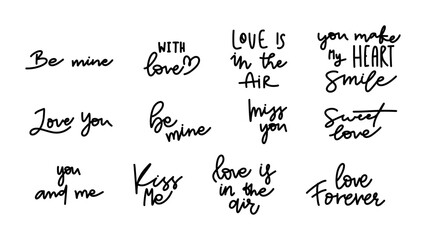 Be mine
WITH
love
LOVE IS
in the
AIR
you make
My HEART
Smile
Love You
be
mine
miss
you
Sweet
love
you
and me
Kiss
Me
love is
in the
air
love
Forever